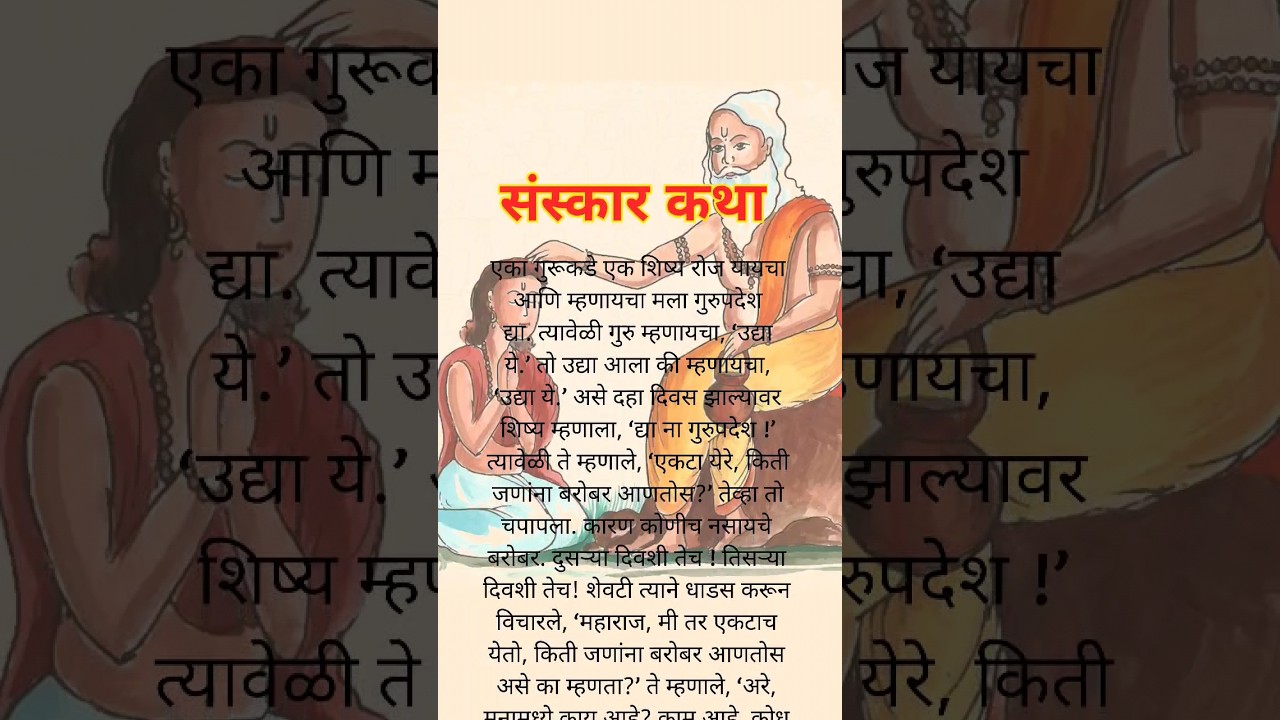 संस्कार कथा
एका गुरूकडे एक शिष्य रोज यायचा
आणि म्हणायचा मला गुरुपदेश
द्या. त्यावेळी गुरु म्हणायचा, ‘उद्या
ये.’ तो उद्या आला की म्हणायचा,
‘उद्या ये.’ असे दहा दिवस झाल्यावर
शिष्य म्हणाला, ‘द्या ना गुरुपदेश !’
त्यावेळी ते म्हणाले, ‘एकटा येरे, किती
जणांना बरोबर आणतोस?’ तेव्हा तो
चपापला. कारण कोणीच नसायचे
बरोबर. दुसऱ्या दिवशी तेच ! तिसऱ्या
दिवशी तेच! शेवटी त्याने धाडस करून
विचारले, ‘महाराज, मी तर एकटाच
येतो, किती जणांना बरोबर आणतोस
असे का म्हणता?’ ते म्हणाले, ‘अरे,
मनामध्ये काय आहे? काम आहे, क्रोध